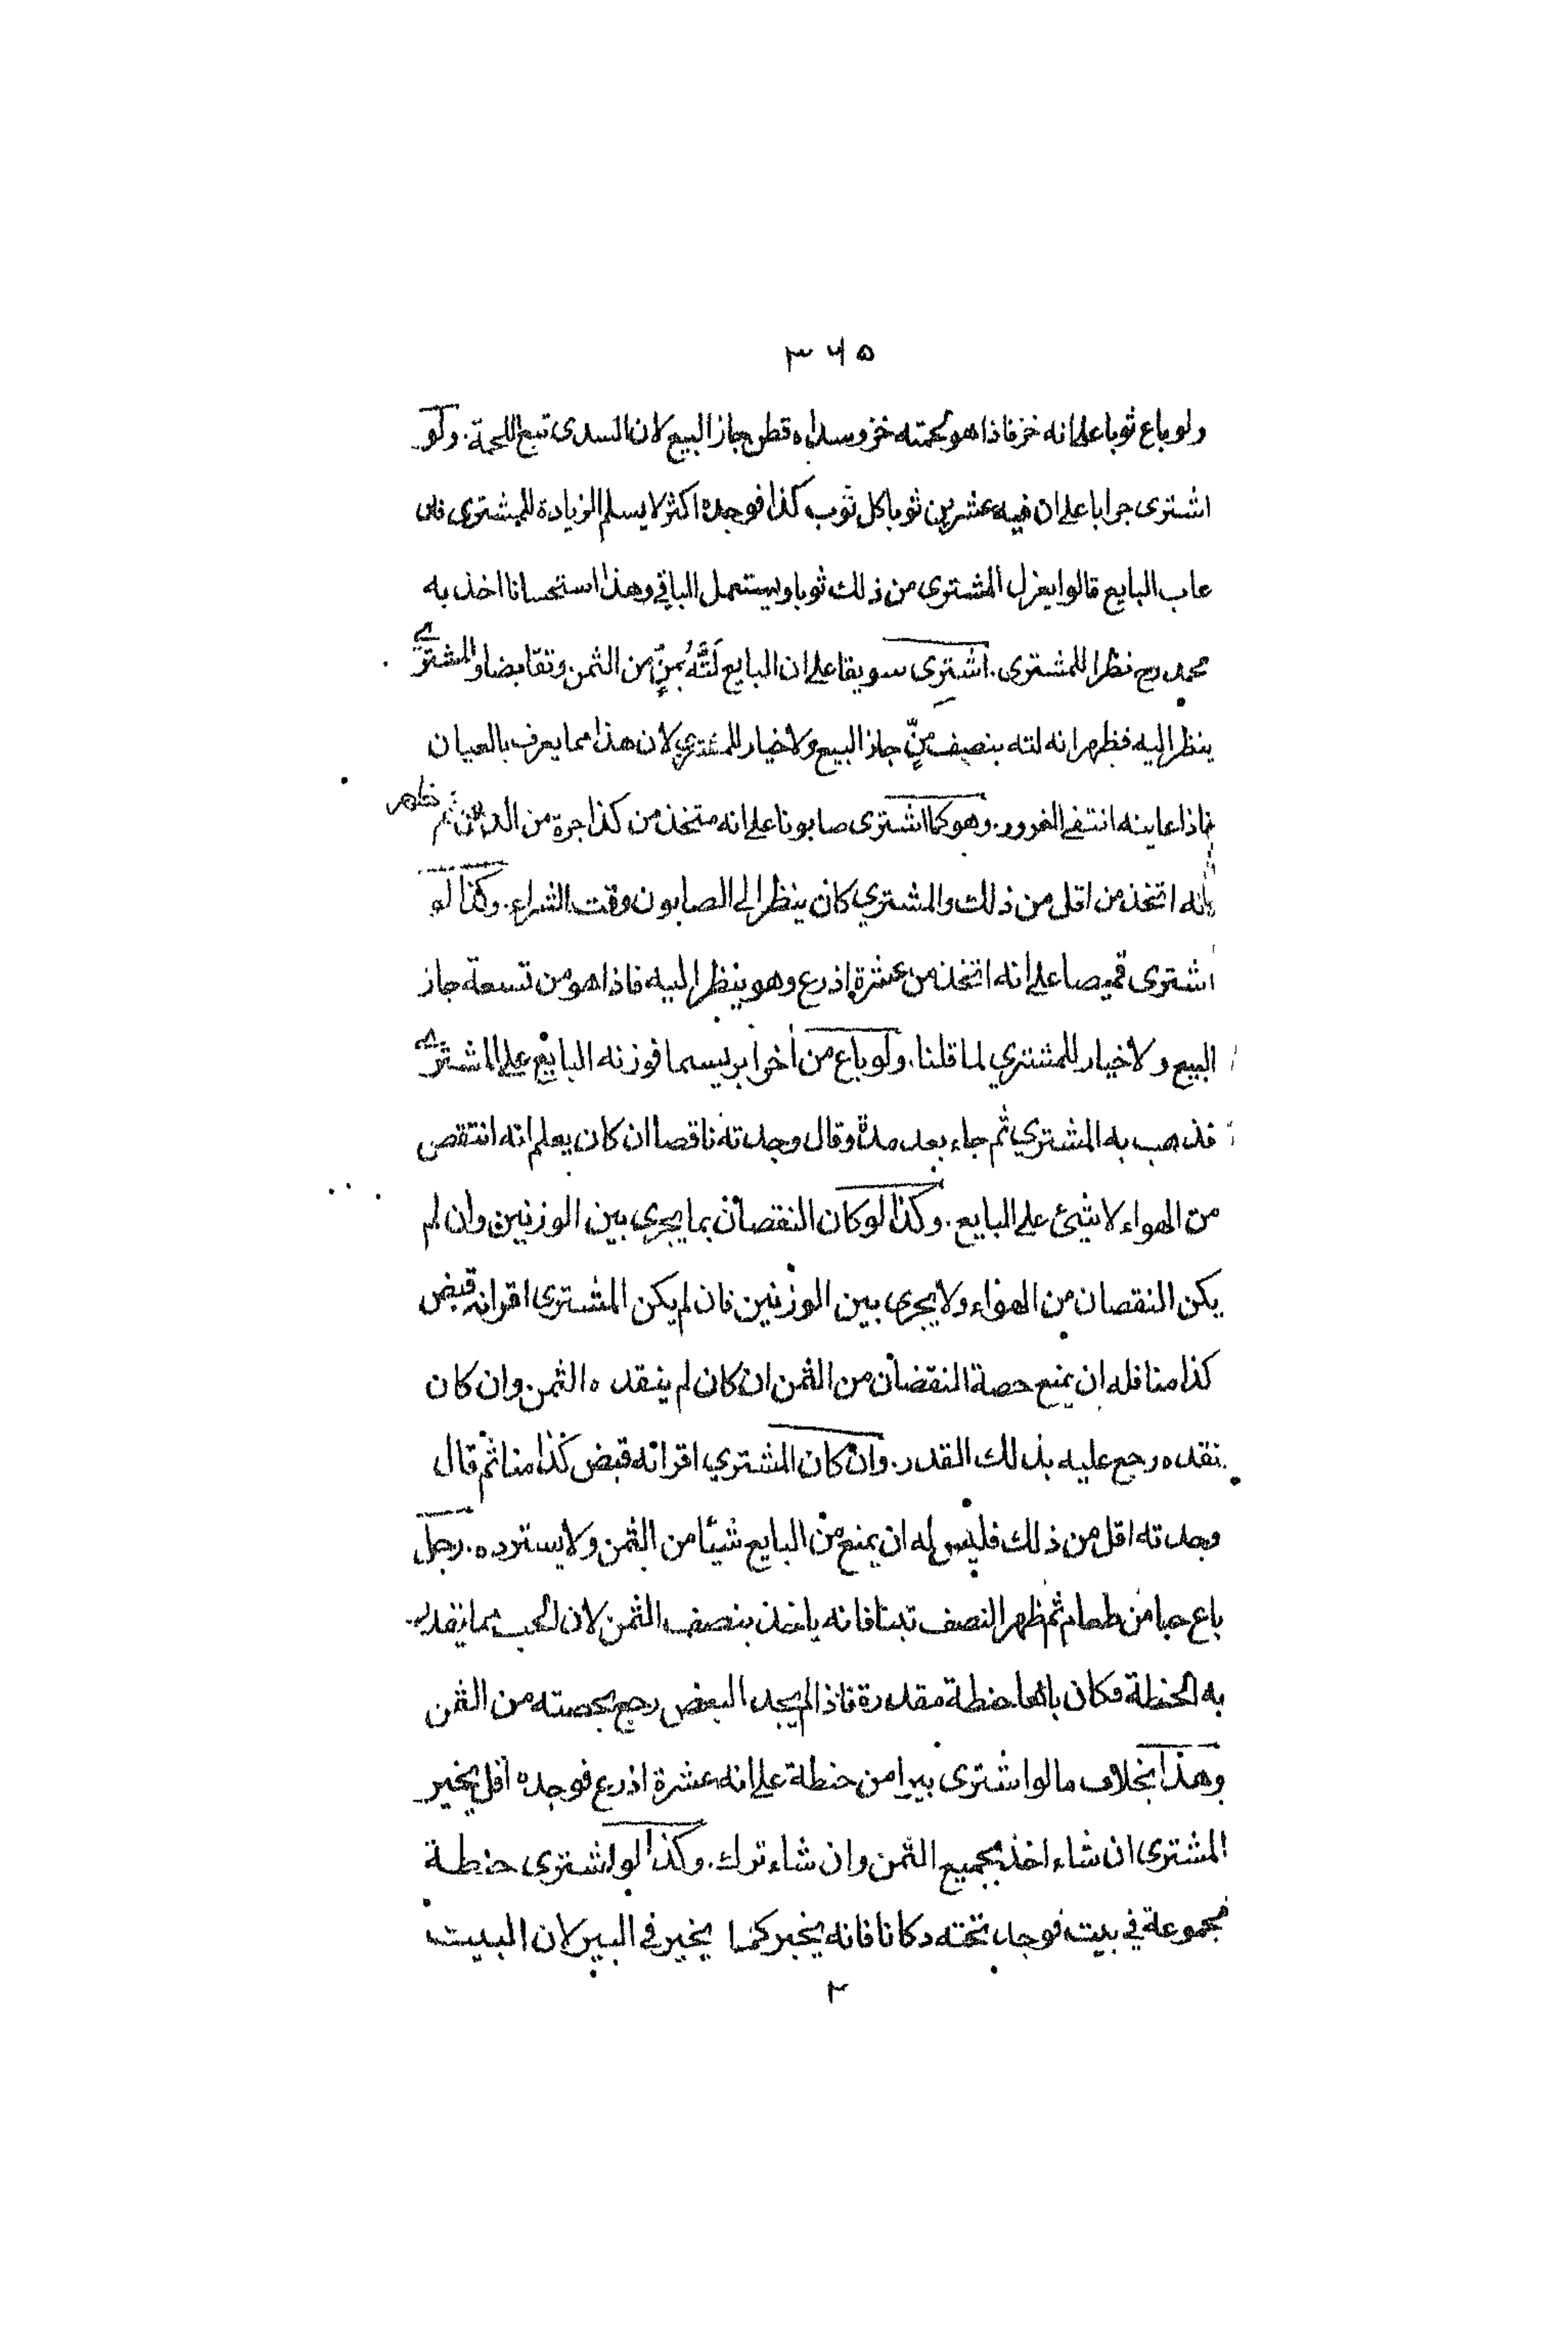 ۳۶۵
ولو باع ثوبا على انه خز فاذا هو لحمته خز وسداه قطن جاز البيع لان السدى تبع اللحمة. ولو
اشترى جرابا على ان فيه عشرين ثوبا كل ثوب كذا فوجده اكثر لا يسلم الزيادة للمشترى فان
عاب البايع قالوا يعزل المشترى من ذلك ثوبا ويستعمل الباقي وهذا استحسانا اخذ به
محمد رح نظرا للمشترى. اشترى سويقا على ان البايع لتّه بمنٍّ من الثمن وتقابضا والمشترى
ينظر اليه فظهر انه لته بنصف منٍّ جاز البيع ولا خيار للمشتري لان هذا مما يعرف بالعيان
فاذا عاينه انتفى الغرور. وهو كما اشترى صابونا على انه متخذ من كذا جرة من الدهن ثم ظهر
انه اتخذ من اقل من ذلك والمشتري كان ينظر الى الصابون وقت الشراء. وكذا لو
اشترى قميصا على انه اتخذ من عشرة اذرع وهو ينظر اليه فاذا هو من تسعة جاز
البيع ولا خيار للمشتري لما قلنا. ولو باع من اخر ابريسما فوزنه البايع على المشترى
فذهب به المشتري ثم جاء بعد مدة وقال وجدته ناقصا ان كان يعلم انه انتقص
من الهواء لا شيئ على البايع. وكذا لو كان النقصان بما يجرى بين الوزنين وان لم
يكن النقصان من الهواء ولا يجرى بين الوزنين فان لم يكن المشترى اقر انه قبض
كذا منا فله ان يمنع حصة النقصان من الثمن ان كان لم ينقده الثمن. وان كان
نقده رجع عليه بذلك القدر. وان كان المشتري اقر انه قبض كذا منا ثم قال
وجدته اقل من ذلك فليس له ان يمنع من البايع شيئا من الثمن ولا يسترده. رجل
باع حبا من طعام ثم ظهر النصف تبنا فانه ياخذ بنصف الثمن لان الحب مما يقدر
به الحنطة فكان بائعا حنطة مقدرة فاذا لم يجد البعض رجع بحصته من الثمن
وهذا بخلاف ما لو اشترى بيرا من حنطة على انه عشرة اذرع فوجده اقل يخير
المشترى ان شاء اخذ بجميع الثمن وان شاء ترك. وكذا لو اشترى حنطة
مجموعة في بيت فوجد تحته دكانا فانه يخير كما يخير في البير لان البيت
۳